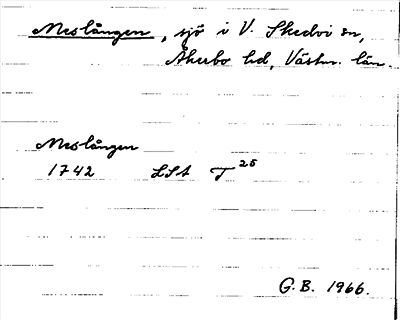 Meslången, sjö i V. Skedvi sn,
Åkerbo hd, Västm. län.
Meslången
1742 LSA T 25
G.B. 1966.